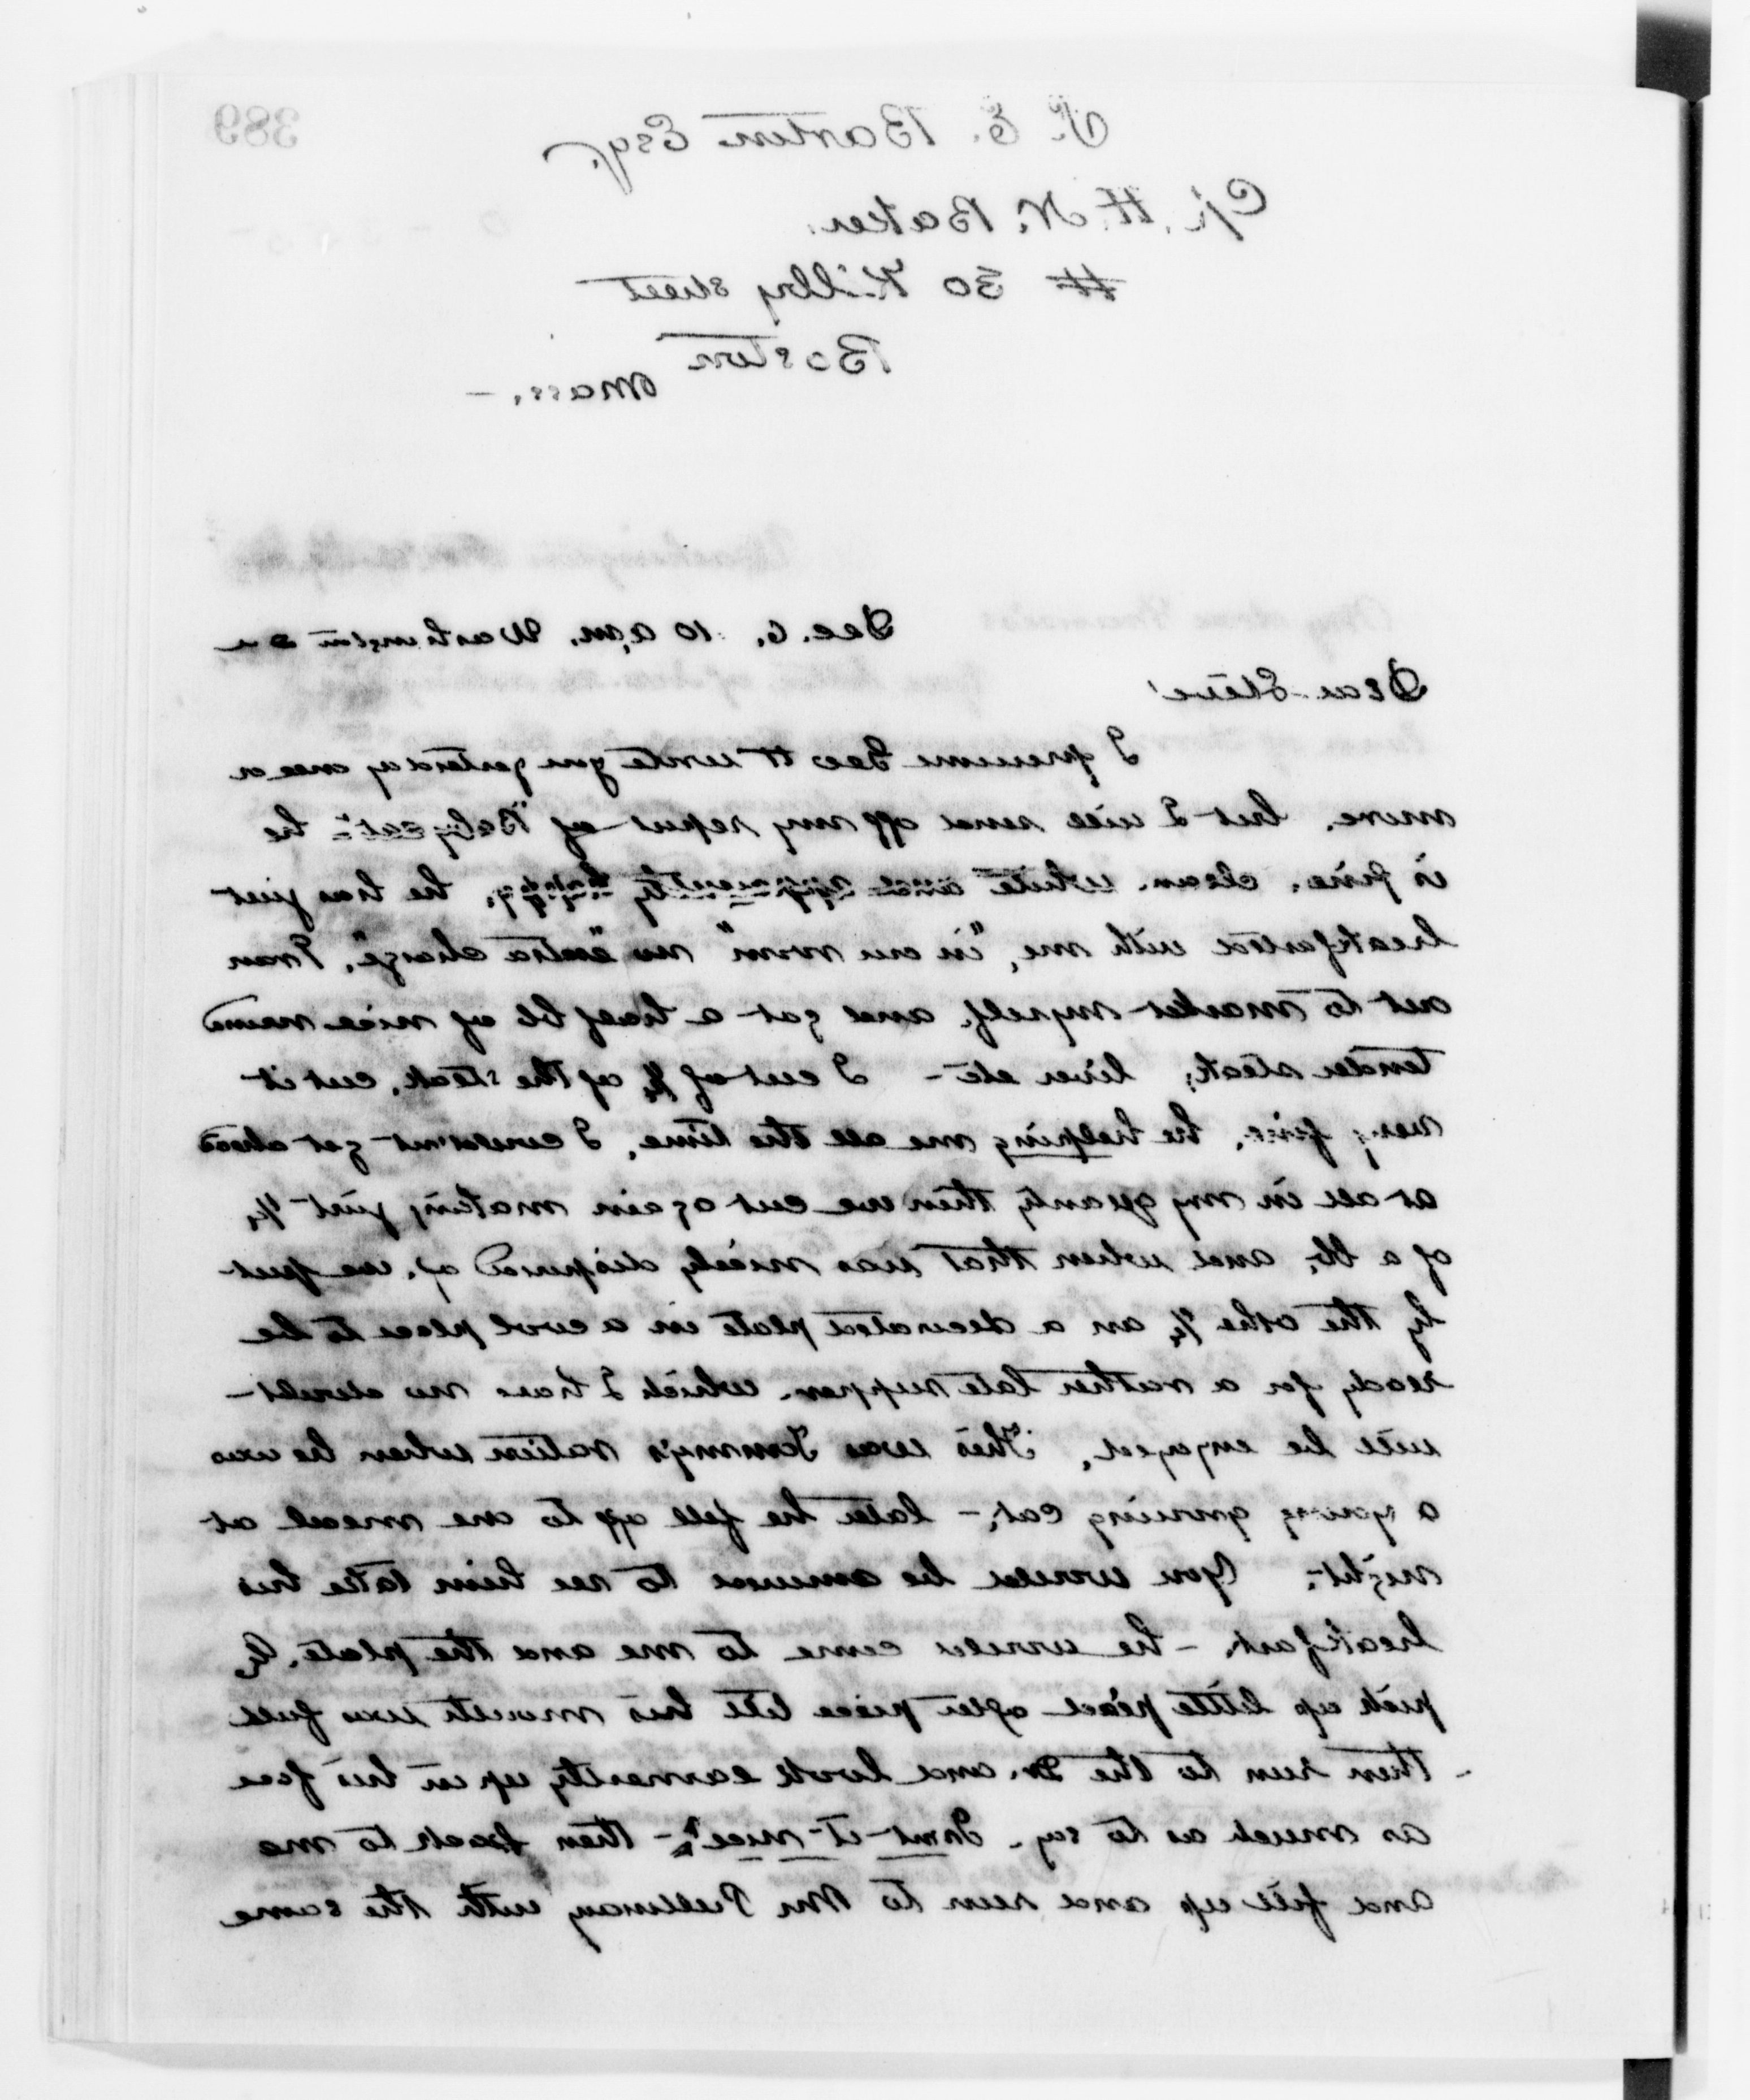 389
S. E. Barton Esq.
C/o H. N. Baker
# 30 Kilby Street
Boston
Mass. -
Dec. 6. 10 a.m. Washington
Dear Steve
I presume Geo wrote you yesterday once or
more, but I will send off my report of "Baby cat" he
is fine, clean, white and apparently happy, he has just
breakfasted with me, "in our room" no "extra charge", I ran
out to market myself, and got a half lb of nice round
tender steak, liver etc - I cut of ½ of the steak, cut it
very fine, he helping me all the time, I could not get ahead
at all in my quantity then we cut again making just ¼
of a lb, and when that was nicely disposed of, we put
by the other ¼ on a decorated plate in a cool place to be
ready for a rather late supper, which I have no doubt -
will be enjoyed. This was Tommy's ration when he was
a young growing cat, - later he fell off to one meal at
night. You would be amused to see him take his
breakfast, - he would come to me and the plate,
pick up little piece after piece till his mouth was full
- then run to the Dr. and look earnestly up in his face
as much as to say, Isn't it nice? - then back to me
and fill up and run to Mr Pullman, with the same